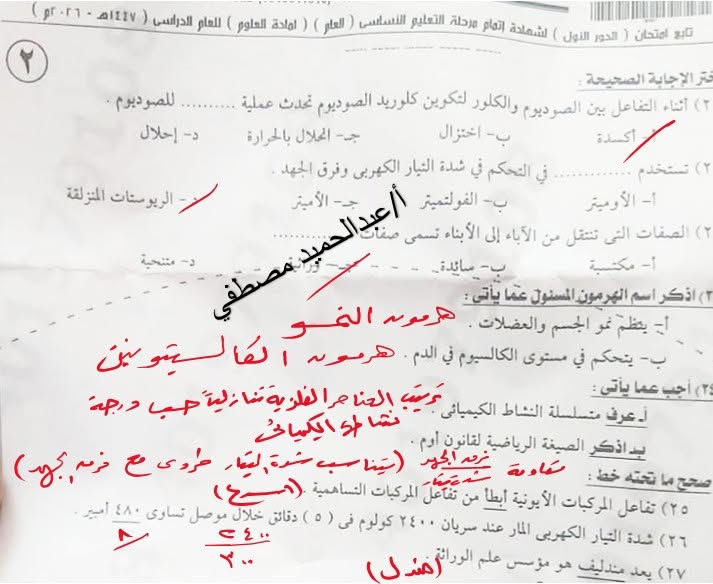 تابع امتحان ( الدور الأول ) لشهادة إتمام مرحلة التعليم الأساسى ( العام ) ( لمادة العلوم ) للعام الدراسى ( ١٤٤٧هـ - ٢٠٢٦م )
٢
ختر الإجابة الصحيحة :
٢) أثناء التفاعل بين الصوديوم والكلور لتكوين كلوريد الصوديوم تحدث عملية .......... للصوديوم .
أ- أكسدة ب- اختزال جـ- انحلال بالحرارة د- إحلال
٢) تستخدم ............ في التحكم في شدة التيار الكهربى وفرق الجهد .
أ- الأوميتر ب- الفولتميتر جـ- الأميتر د- الريوستات المنزلقة
أ/عبدالحميد مصطفي
٢) الصفات التى تنتقل من الآباء إلى الأبناء تسمى صفات ..........
أ- مكتسبة ب- سائدة جـ- وراثية د- متنحية
٢) اذكر اسم الهرمون المسئول عما يأتى :
أ- ينظم نمو الجسم والعضلات . هرمون النمو
ب- يتحكم في مستوى الكالسيوم في الدم . هرمون الكالسيتونين
٢٤) أجب عما يأتى : ترتيب العناصر الفلزية تنازلياً حسب درجة
أ- عرف متسلسلة النشاط الكيميائى . نشاطها الكيميائى
ب- اذكر الصيغة الرياضية لقانون أوم .
مقاومة فرق الجهد شدة التيار (يتناسب شدة التيار طردى مع فرق الجهد)
صحح ما تحته خط :
٢٥) تفاعل المركبات الأيونية أبطأ من تفاعل المركبات التساهمية . (أسرع)
٢٦) شدة التيار الكهربى المار عند سريان ٢٤٠٠ كولوم فى ( ٥ ) دقائق خلال موصل تساوى ٤٨٠ أمبير .
٢٤٠٠ ٨
٣٠٠
٢٧) يعد مندليف هو مؤسس علم الوراثة . (مندل)